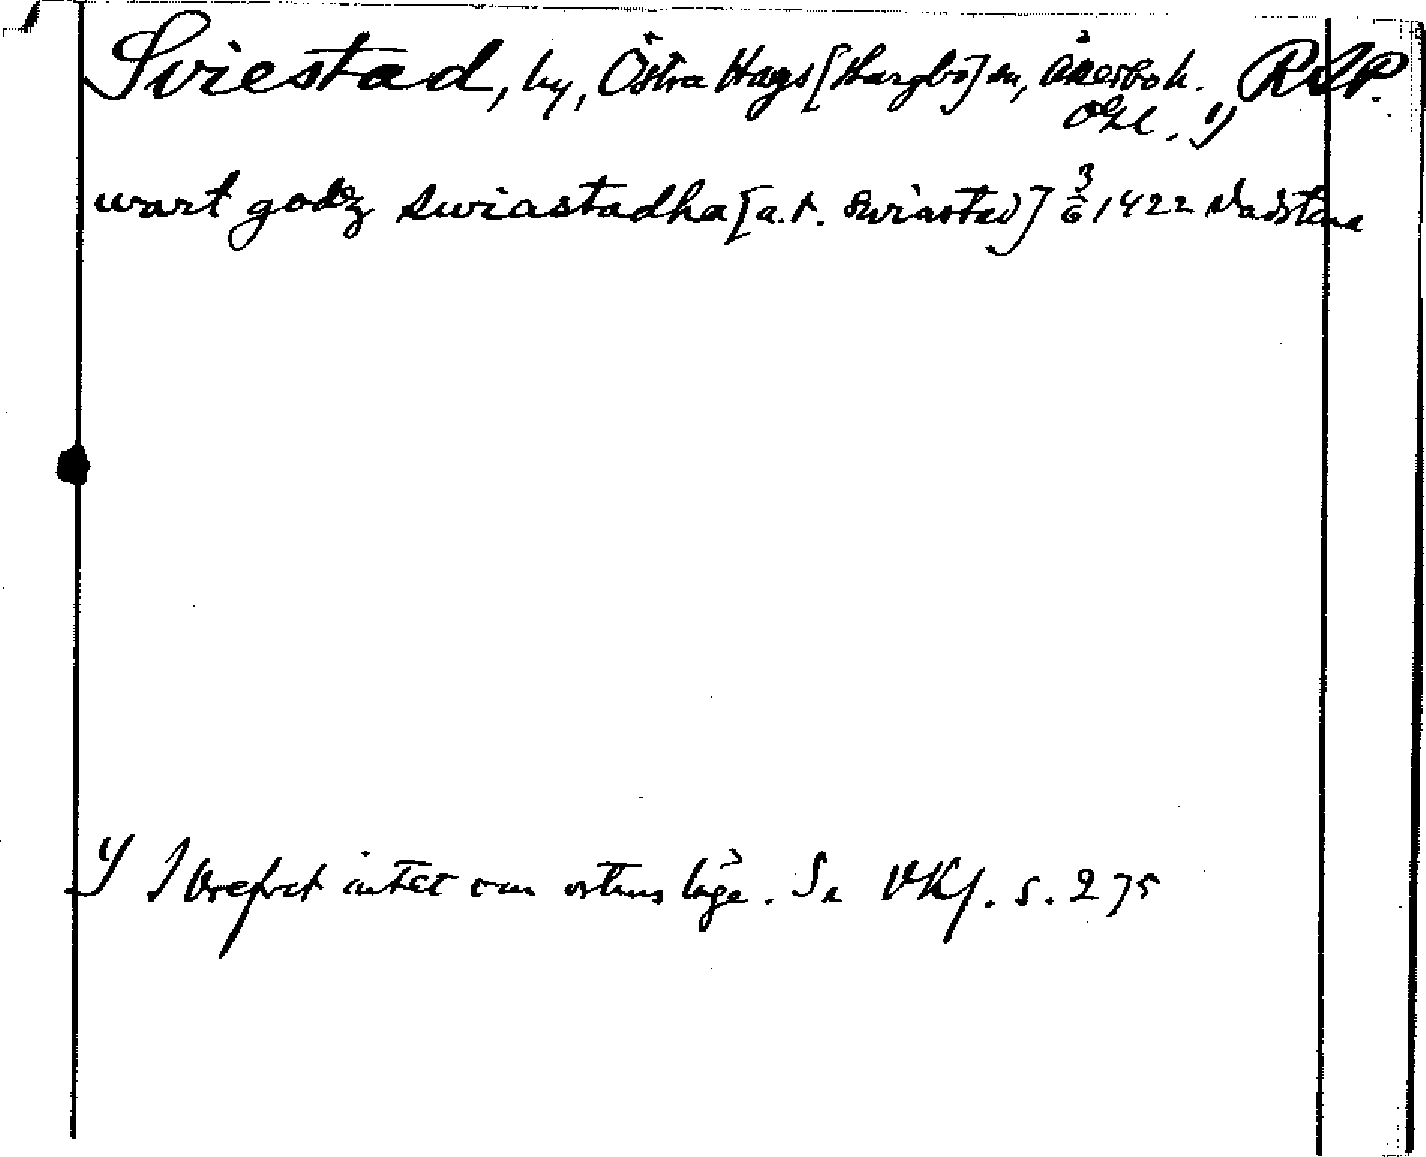 Sviestad, by, Östra Hargs [Hargbo] sn, Åkerbo h. RAP.
Ögl. 1)
wart godz swiastadha [a.t. swiastad] 3/6 1422 Vadstena
1) I brefvet intet om ortens läge. Se VKJ. s. 275